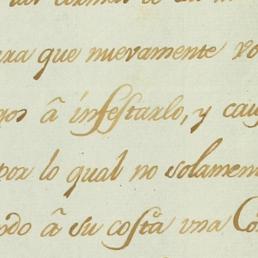 para que nuevamente vo
gos â infestarlo, y cau
por lo qual no solamen
ndo â su costa vna Co